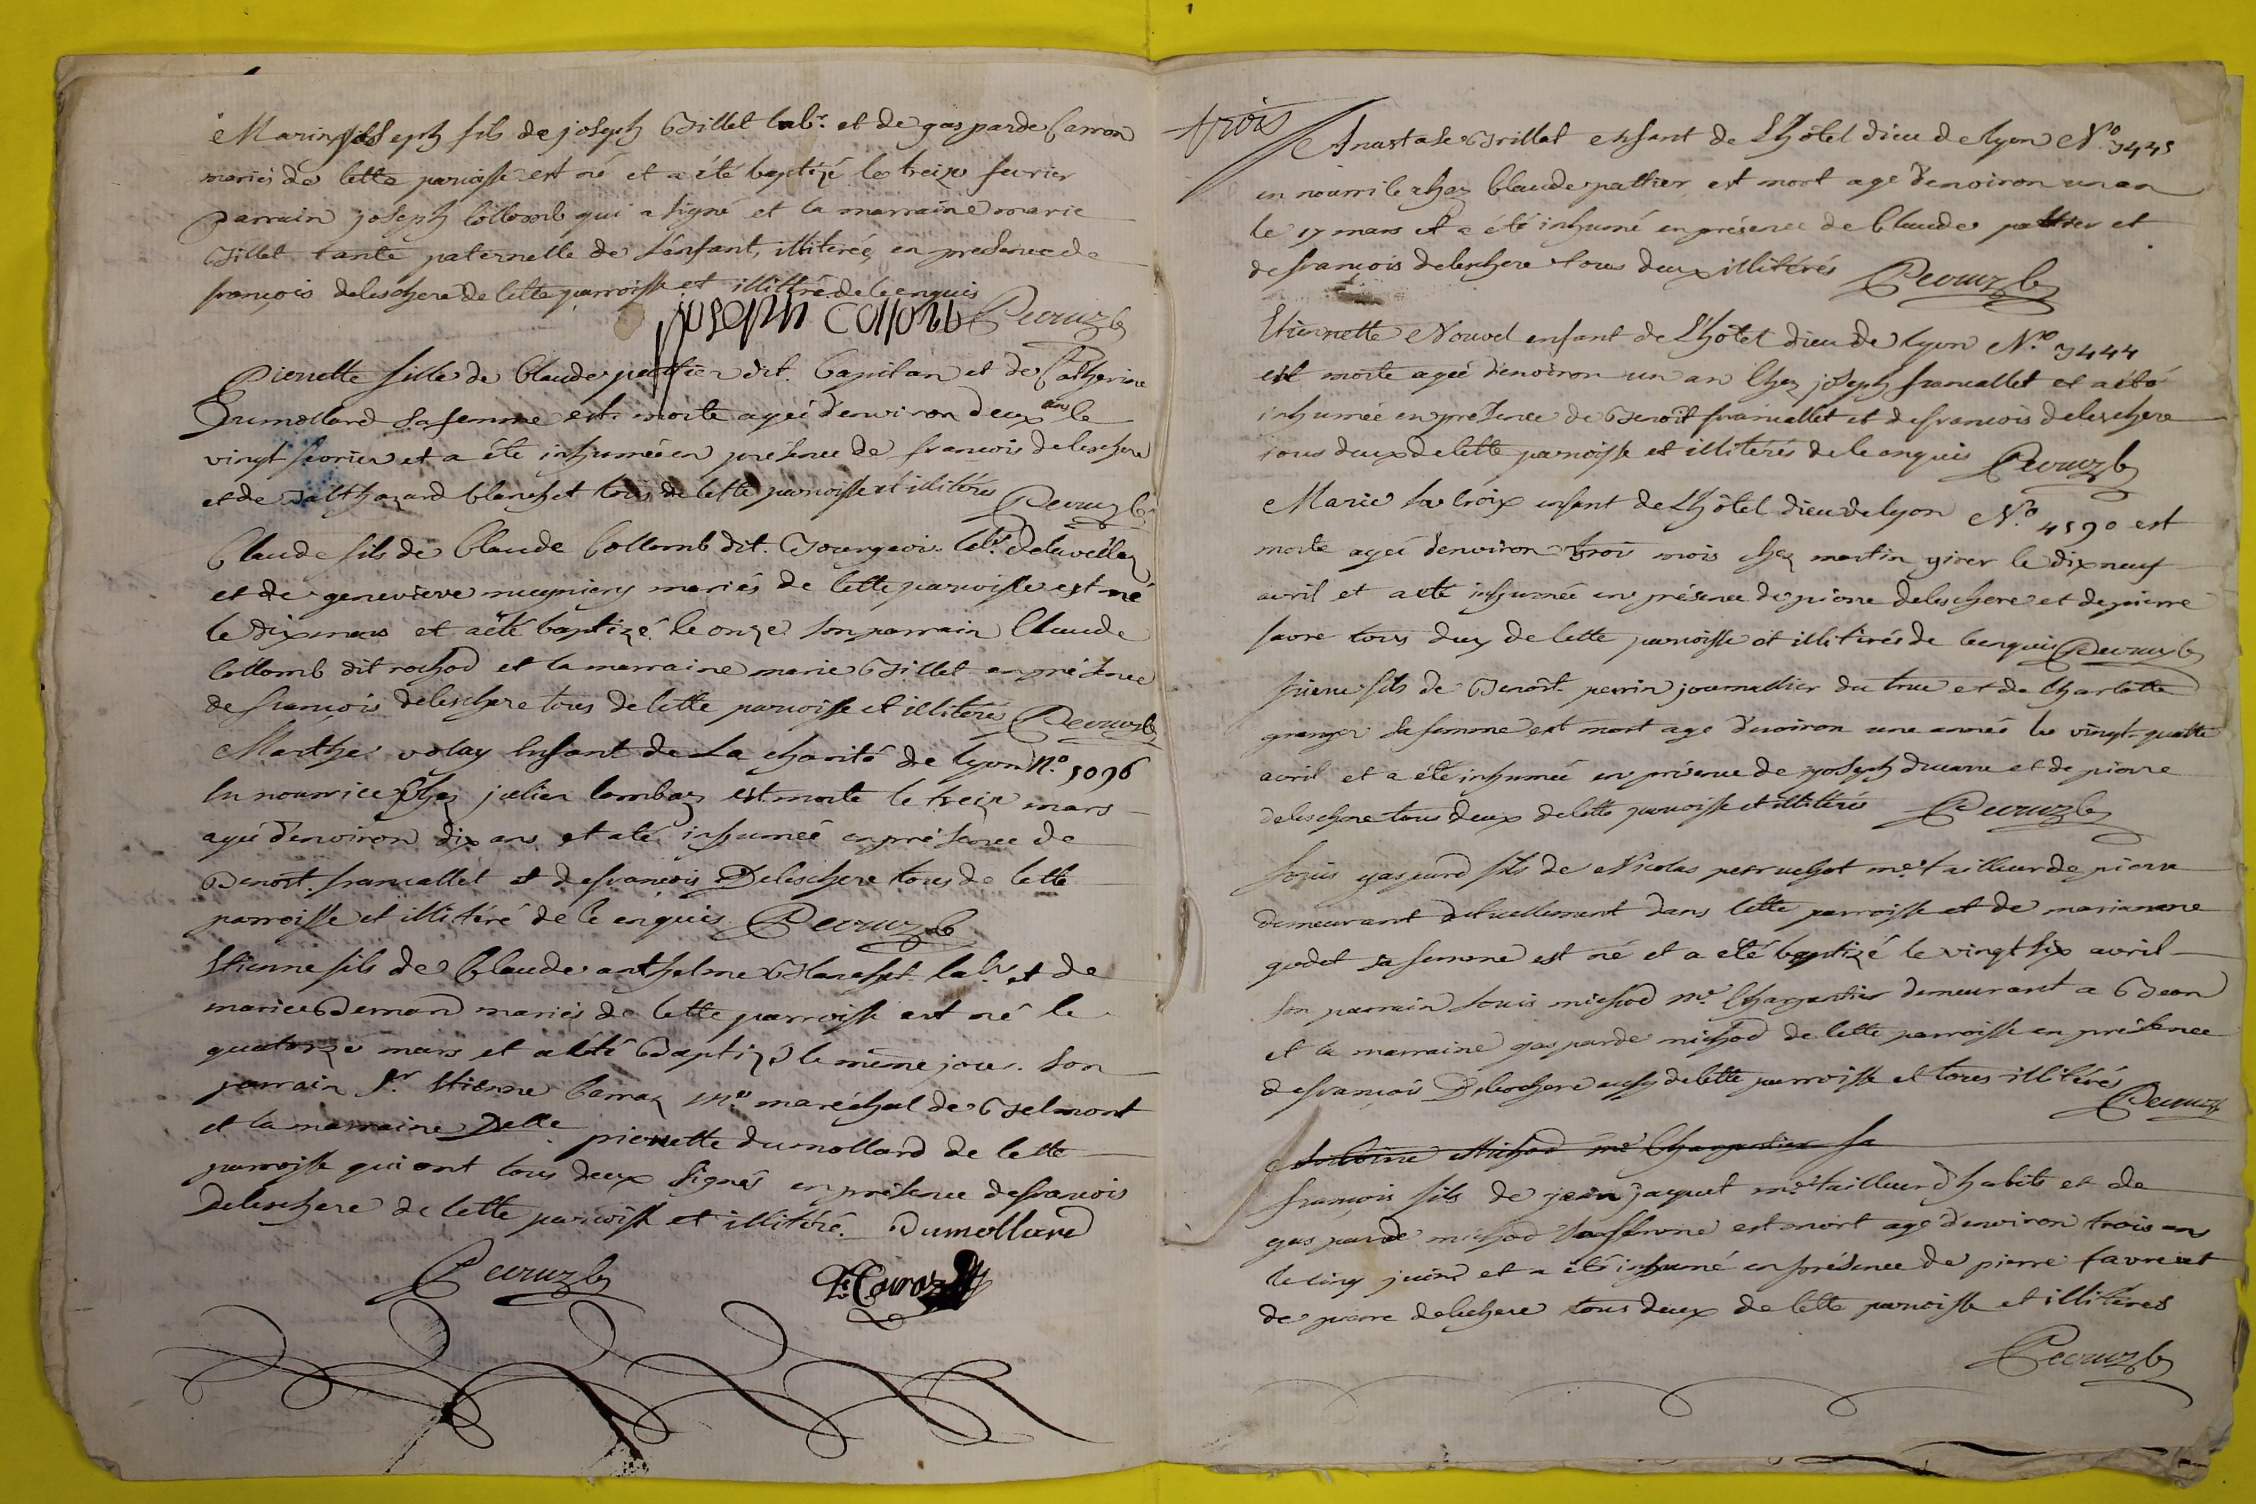 Marin joseph fils de joseph Billet labr. et de gasparde Carron
mariés de cette paroisse est né et a été baptizé le treize fevrier
parrain joseph Collomb qui a signé et la marraine marie
Billet tante paternelle de l'enfant, illiterée, en presence de
françois deleschere de cette parroisse et illitéré de ce enquis
joseph Collonb Pecruz c
Pierrette fille de Claude pettier dit Capitan et de Catherine
Dumollard sa femme est morte agée d'environ deux ans le
vingt fevrier et a été inhumée en présence de francois deleschere
et de Balthazard blanchet tous de cette parroisse et illitérés Pecruz c
Claude fils de Claude Collomb dit Bourgeois labr.
et de genevieve mariés de cette parroisse est né
le dix mars et a été baptizé le onze son parrain Claude
Collomb dit rochod et la marraine marie Billet en présence
de françois deleschere tous de cette parroisse et illitérés Pecruz c
Marthe volay Enfant de La charité de lyon N.o 5096
En nourrice chez julien lombaz est morte le treize mars
agée d'environ dix ans et a été inhumée en présence de
Benoît francallet et de françois Deleschere tous de cette
parroisse et illitéré de ce enquis Pecruz c
Etienne fils de Claude anthelme Blanchet labr. et de
marie Bernard mariés de cette parroisse est né le
quatorze mars et a été Baptizé le même jour. Son
parrain Sr. Etienne Carraz me. maréchal de Belmont
et la marraine Delle pierrette dumollard de cette
parroisse qui ont tous deux Signés en présence de françois
Deleschere de cette parroisse et illitéré. Dumollard
Pecruz c E. Caraz
trois
Anastase Brillat enfant de L'hôtel dieu de lyon N.o 3445
en nourrice chez Claude pattier est mort agé d'environ un an
le 17 mars et a été inhumé en présence de Claude pattier et
de françois deleschere tous deux illitérés Pecruz c
Etiennette Nouvel enfant de L'hôtel dieu de lyon N.o 3444
est morte agée d'environ un an Chez joseph francallet et a été
inhumée en présence de Benoît francallet et de francois deleschere
tous deux de cette parroisse et illitérés de ce enquis Pecruz c
Marie la Croix enfant de L'hôtel dieu de lyon N.o 4590 est
morte agée d'environ trois mois chez martin girer le dix neuf
avril et a été inhumée en présence de pierre deleschere et de pierre
favre tous deux de cette parroisse et illitérés de ce enquis Pecruz c
pierre fils de Benoît perrin journallier du truc et de Charlotte
granger sa femme est mort agé d'environ une année le vingt quatre
avril et a été inhumé en présence de joseph ducarre et de pierre
deleschere tous deux de cette parroisse et illitérés Pecruz c
Louis gaspard fils de Nicolas perruchot me. tailleur de pierre
demeurant actuellement dans cette parroisse et de marianne
godet sa femme est né et a été baptizé le vingt six avril
son parrain Louis michod me. Charpentier demeurant a Beon
et la marraine gasparde michod de cette parroisse en présence
de françois Deleschere aussy de cette parroisse et tous illitérés
Pecruz
Antoine Michod me. Charpentier sa
françois fils de jean jaquet me. tailleur d'habits et de
gasparde michod sa femme est mort agé d'environ trois ans
le cinq juin et a été inhumé en présence de pierre favre et
de pierre deleschere tous deux de cette parroisse et illitérés
Pecruz c